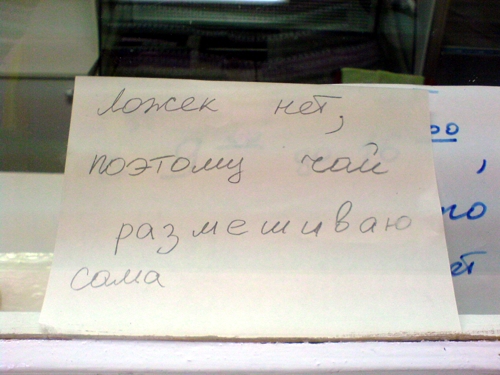 Ложек нет,
поэтому чай
размешиваю
сама
00
,
го
ет